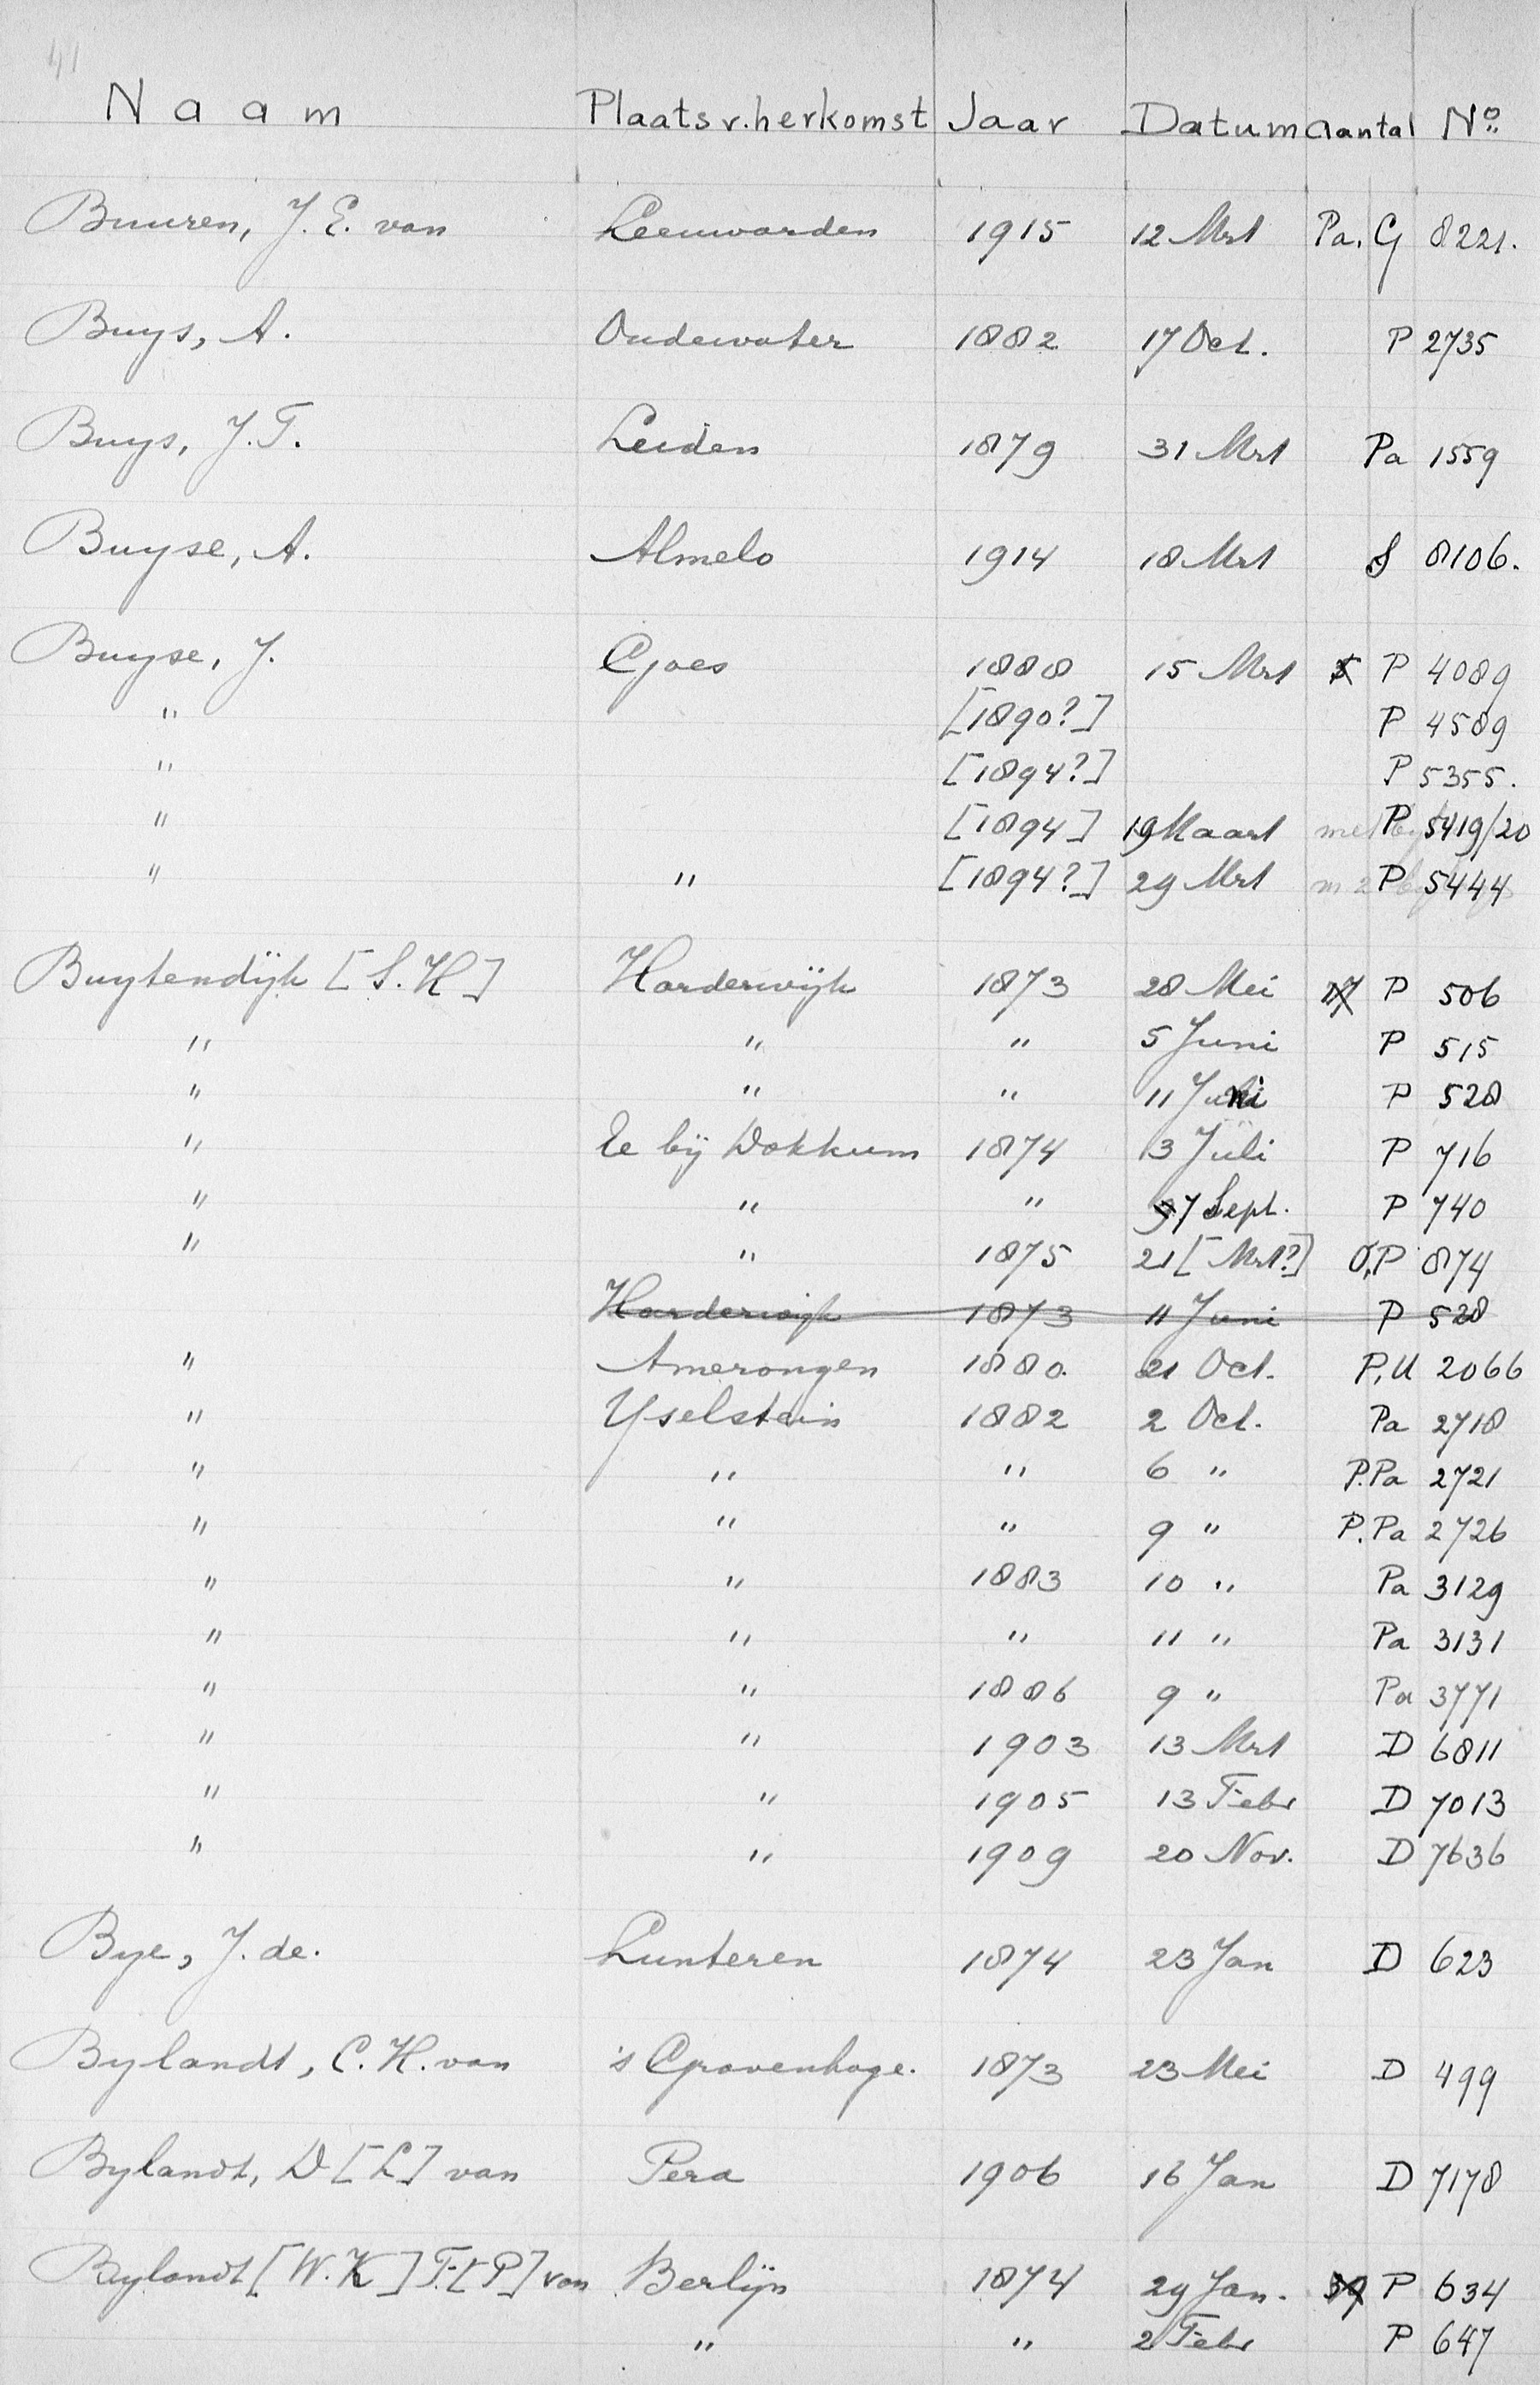 41
Naam Plaats v. herkomst Jaar Datum Aantal No
Buuren, J. E. van Leeuwarden 1915 12 Mrt Pa. G 8221.
Buys, A. Oudewater 1882 17 Oct. P 2735
Buys, J. T. Leiden 1879 31 Mrt Pa 1559
Buyse, A. Almelo 1914 18 Mrt S 8106.
Buyse, J. Goes 1888 15 Mrt 5 P 4089
" [1890?] P 4589
" [1894?] P 5355.
" [1894] 19 Maart met P 5419/20
" " [1894?] 29 Mrt m 2 P 5444
Buytendijk [S. H] Harderwijk 1873 28 Mei 17 P 506
" " " 5 Juni P 515
" " " 11 Juni P 528
" Ee bij Dokkum 1874 13 Juli P 716
" " " 7 Sept. P 740
" " 1875 21 [Mrt?] O,P 874
Harderwijk 1873 11 Juni P 528
" Amerongen 1880. 21 Oct. P,U 2066
" Yselstein 1882 2 Oct. Pa 2718
" " " 6 " P.Pa 2721
" " " 9 " P.Pa 2726
" " 1883 10 " Pa 3129
" " " 11 " Pa 3131
" " 1886 9 " Pa 3771
" " 1903 13 Mrt D 6811
" " 1905 13 Febr D 7013
" " 1909 20 Nov. D 7636
Bye, J. de. Lunteren 1874 23 Jan D 623
Bylandt, C. H. van 's Gravenhage. 1873 23 Mei D 499
Bylandt, D [L] van Pera 1906 16 Jan D 7178
Bylandt [W. K] F. [P] van Berlijn 1874 29 Jan. 39 P 634
" " 2 Febr P 647